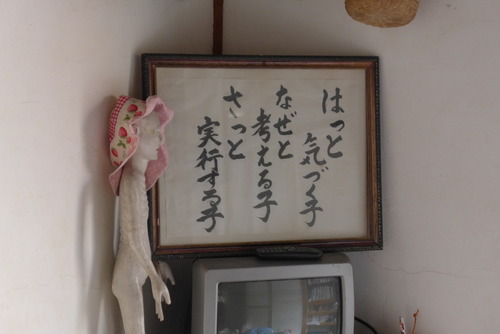 はっと
気づく子
なぜと
考える子
さっと
実行する子